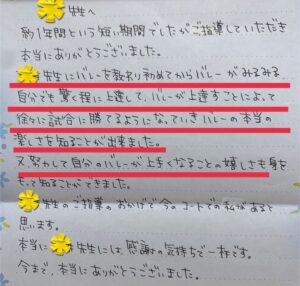 先生へ
約1年間という短い期間でしたがご指導していただき
本当にありがとうございました。
先生にバレーを教わり初めてからバレーがみるみる
自分でも驚く程に上達して、バレーが上達することによって
徐々に試合に勝てるようになっていきバレーの本当の
楽しさを知ることが出来ました。
又、努力して自分のバレーが上手くなることの嬉しさも身を
もって知ることができました。
先生のご指導のおかげで今のコートでの私があると
思います。
本当に先生には、感謝の気持ちで一杯です。
今まで、本当にありがとうございました。